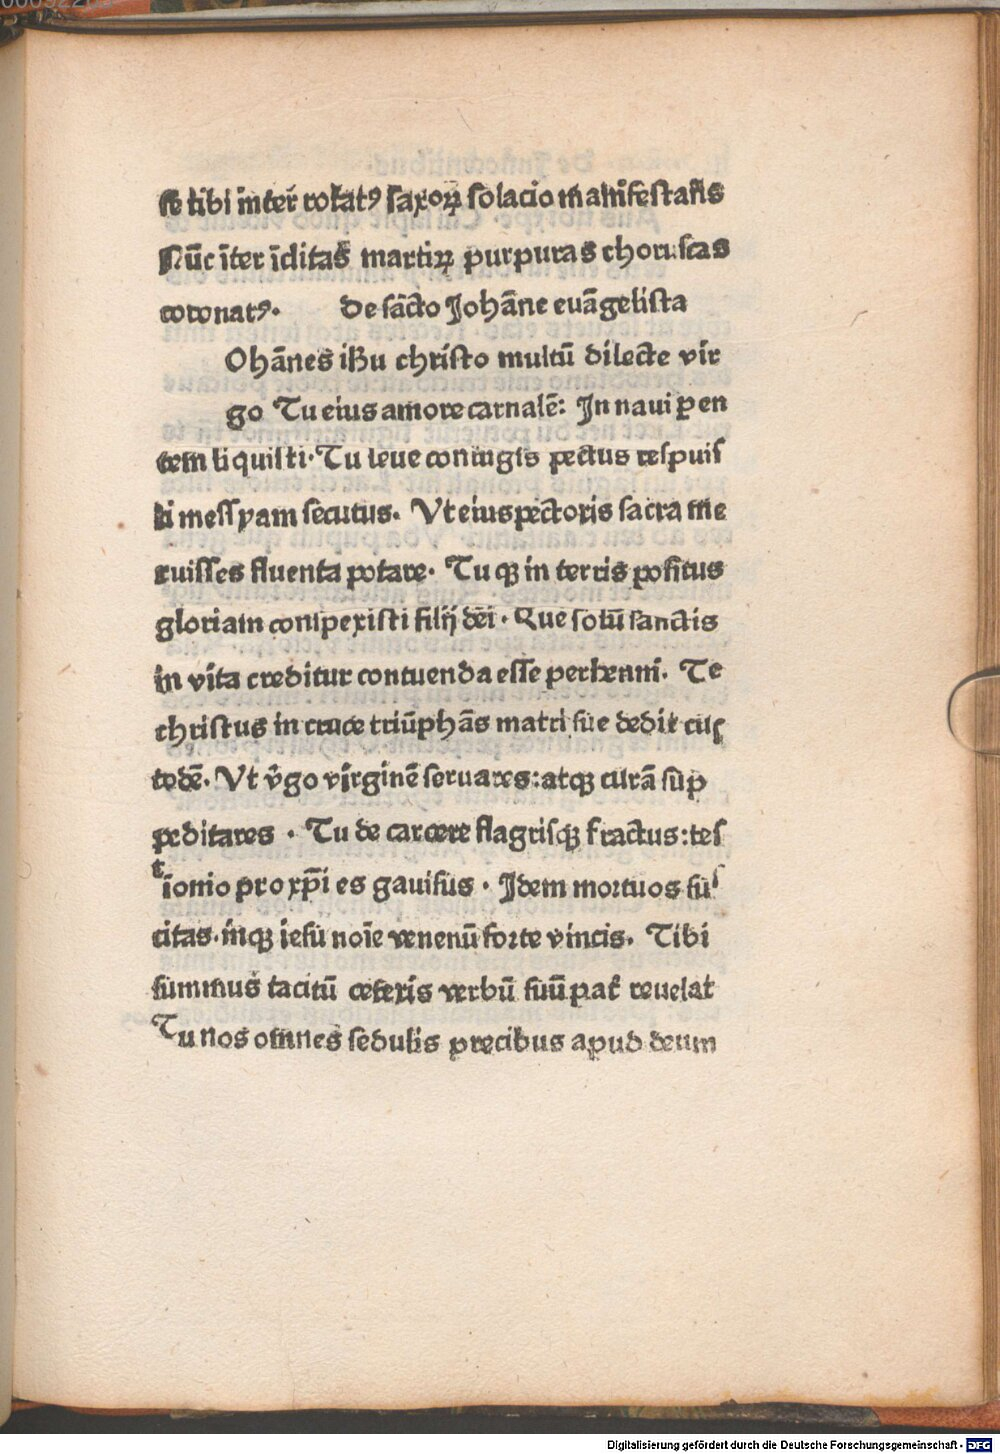 se tibi inter̄ rotat⁹ saxoꝝ solacio manifestās
Nūc īter īditas̄ martiꝝ purpuras choruscas
coronat⁹. De sācto Johāne evāgelista
Ohānes ihu christo multū dilecte vir
go Tu eius amore carnalē: In navi ꝑen
tem liquisti. Tu leue coniugis pectus respuis
ti messyam secutus. Vt eius pectoris sacra me
ruisses fluenta potare. Tu qꝫ in terris positus
gloriam conspexisti filij dēi. Que solū sanctis
in vita creditur contuenda esse perhenni. Te
christus in cruce triūphās matri sue dedit cus
todē. Vt v̄go virginē seruares: atqꝫ curā sup
peditares. Tu de carcere flagrisqꝫ fractus: tes
tionio pro xp̄i es gauisus. Idem mortuos sus
citas. inqꝫ iesū noīe venenū forte vincis. Tibi
summus tacitū ceteris verbū suū pat̄ reuelat
Tu nos omnes sedulis precibus apud deum
Digitalisierung gefördert durch die Deutsche Forschungsgemeinschaft - DFG